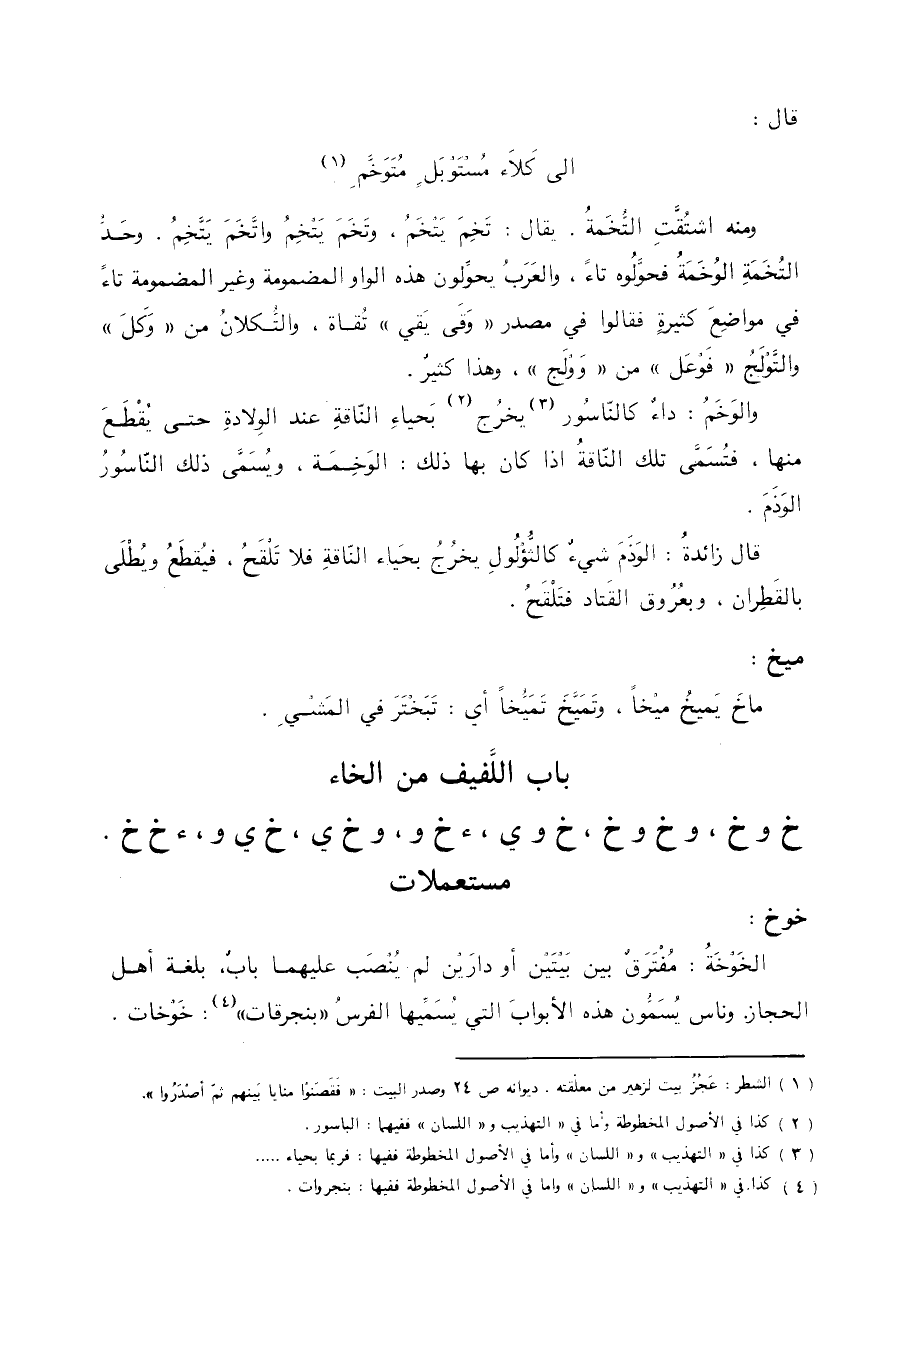 قال :
الى كَلَاء مُسْتَوْبَلٍ مُتَوَخَّمِ (١)
ومنه اشتُقَّتِ التُّخَمةُ . يقال : تَخِمَ يَتْخَمُ ، وتَخَمَ يَتْخِمُ واتَّخَمَ يَتَّخِمُ . وحَدُّ
التُخَمَةِ الوُخَمَةُ فحوَّلُوه تاءً ، والعَرَبُ يحوِّلون هذه الواو المضمومة وغير المضمومة تاءً
في مواضِعَ كثيرةٍ فقالوا في مصدر « وَقَى يَقي » تُقـاة ، والتُّكلانُ من « وَكَلَ »
والتَّوْلَجُ « فَوْعَل » من « وَوْلَج » ، وهذا كثيرٌ .
والوَخَمُ : داءٌ كالنّاسُور (٣) يخرُج (٢) بَحياءِ النّاقةِ عند الوِلادةِ حتـى يُقْطَـعَ
منها ، فتُسَمَّى تلك النّاقةُ اذا كان بها ذلك : الوَخِـمَـة ، ويُسَمَّى ذلك النّاسُورُ
الوَذَمَ .
قال زائدةُ : الوَذَمَ شيءٌ كالثُّؤْلُولِ يخرُجُ بحيَاء النّاقةِ فلا تَلْقَحُ ، فيُقطَعُ ويُطْلَى
بالقَطِران ، وبعُرُوق القَتاد فتَلْقَحُ .
ميخ :
ماخَ يَميخُ ميْخاً ، وتَمَيَّخَ تَمَيُّخاً أي : تَبَخْتَرَ في المَشْـيِ .
باب اللَّفيف من الخاء
خ و خ ، و خ و خ ، خ و ي ، ء خ و ، و خ ي ، خ ي و ، ء خ خ .
مستعملات
خوخ :
الخَوْخَةُ : مُفْتَرَقٌ بين بَيْتَيْن أو دارَيْن لم يُنْصَب عليهمـا بابٌ، بلغـة أهـل
الحجاز. وناس يُسَمُّون هذه الأبوابَ التي يُسَمِّيها الفرسُ «بنجرقات» (٤) : خَوْخات .
( ١ ) الشطر : عَجُزُ بيت لزهير من معلقته . ديوانه ص ٢٤ وصدر البيت : « فَقَصَنَوْا منايا بَينهم ثمّ أصْدَرُوا ».
( ٢ ) كذا في الأصول المخطوطة وأما في « التهذيب و« اللسان » ففيهما : الباسور .
( ٣ ) كذا في « التهذيب » و« اللسان » وأما في الأصول المخطوطة ففيها : فربما بحياء .....
( ٤ ) كذا.في « التهذيب » و« اللسان » واما في الأصول المخطوطة ففيها : بنجروات .